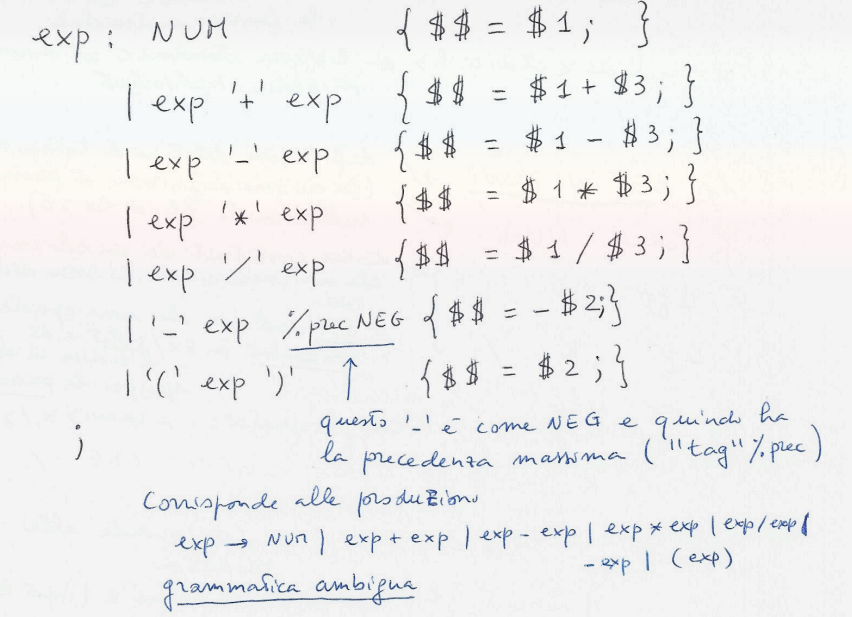 exp : NUM { $$ = $1; }
| exp '+' exp { $$ = $1 + $3; }
| exp '-' exp { $$ = $1 - $3; }
| exp '*' exp { $$ = $1 * $3; }
| exp '/' exp { $$ = $1 / $3; }
| '-' exp %prec NEG { $$ = - $2; }
| '(' exp ')' { $$ = $2 ; }
;
questo '-' è come NEG e quindi ha
la precedenza massima ("tag" %prec)
Corrisponde alle produzioni
exp → NUM | exp + exp | exp - exp | exp * exp | exp / exp |
- exp | (exp)
grammatica ambigua